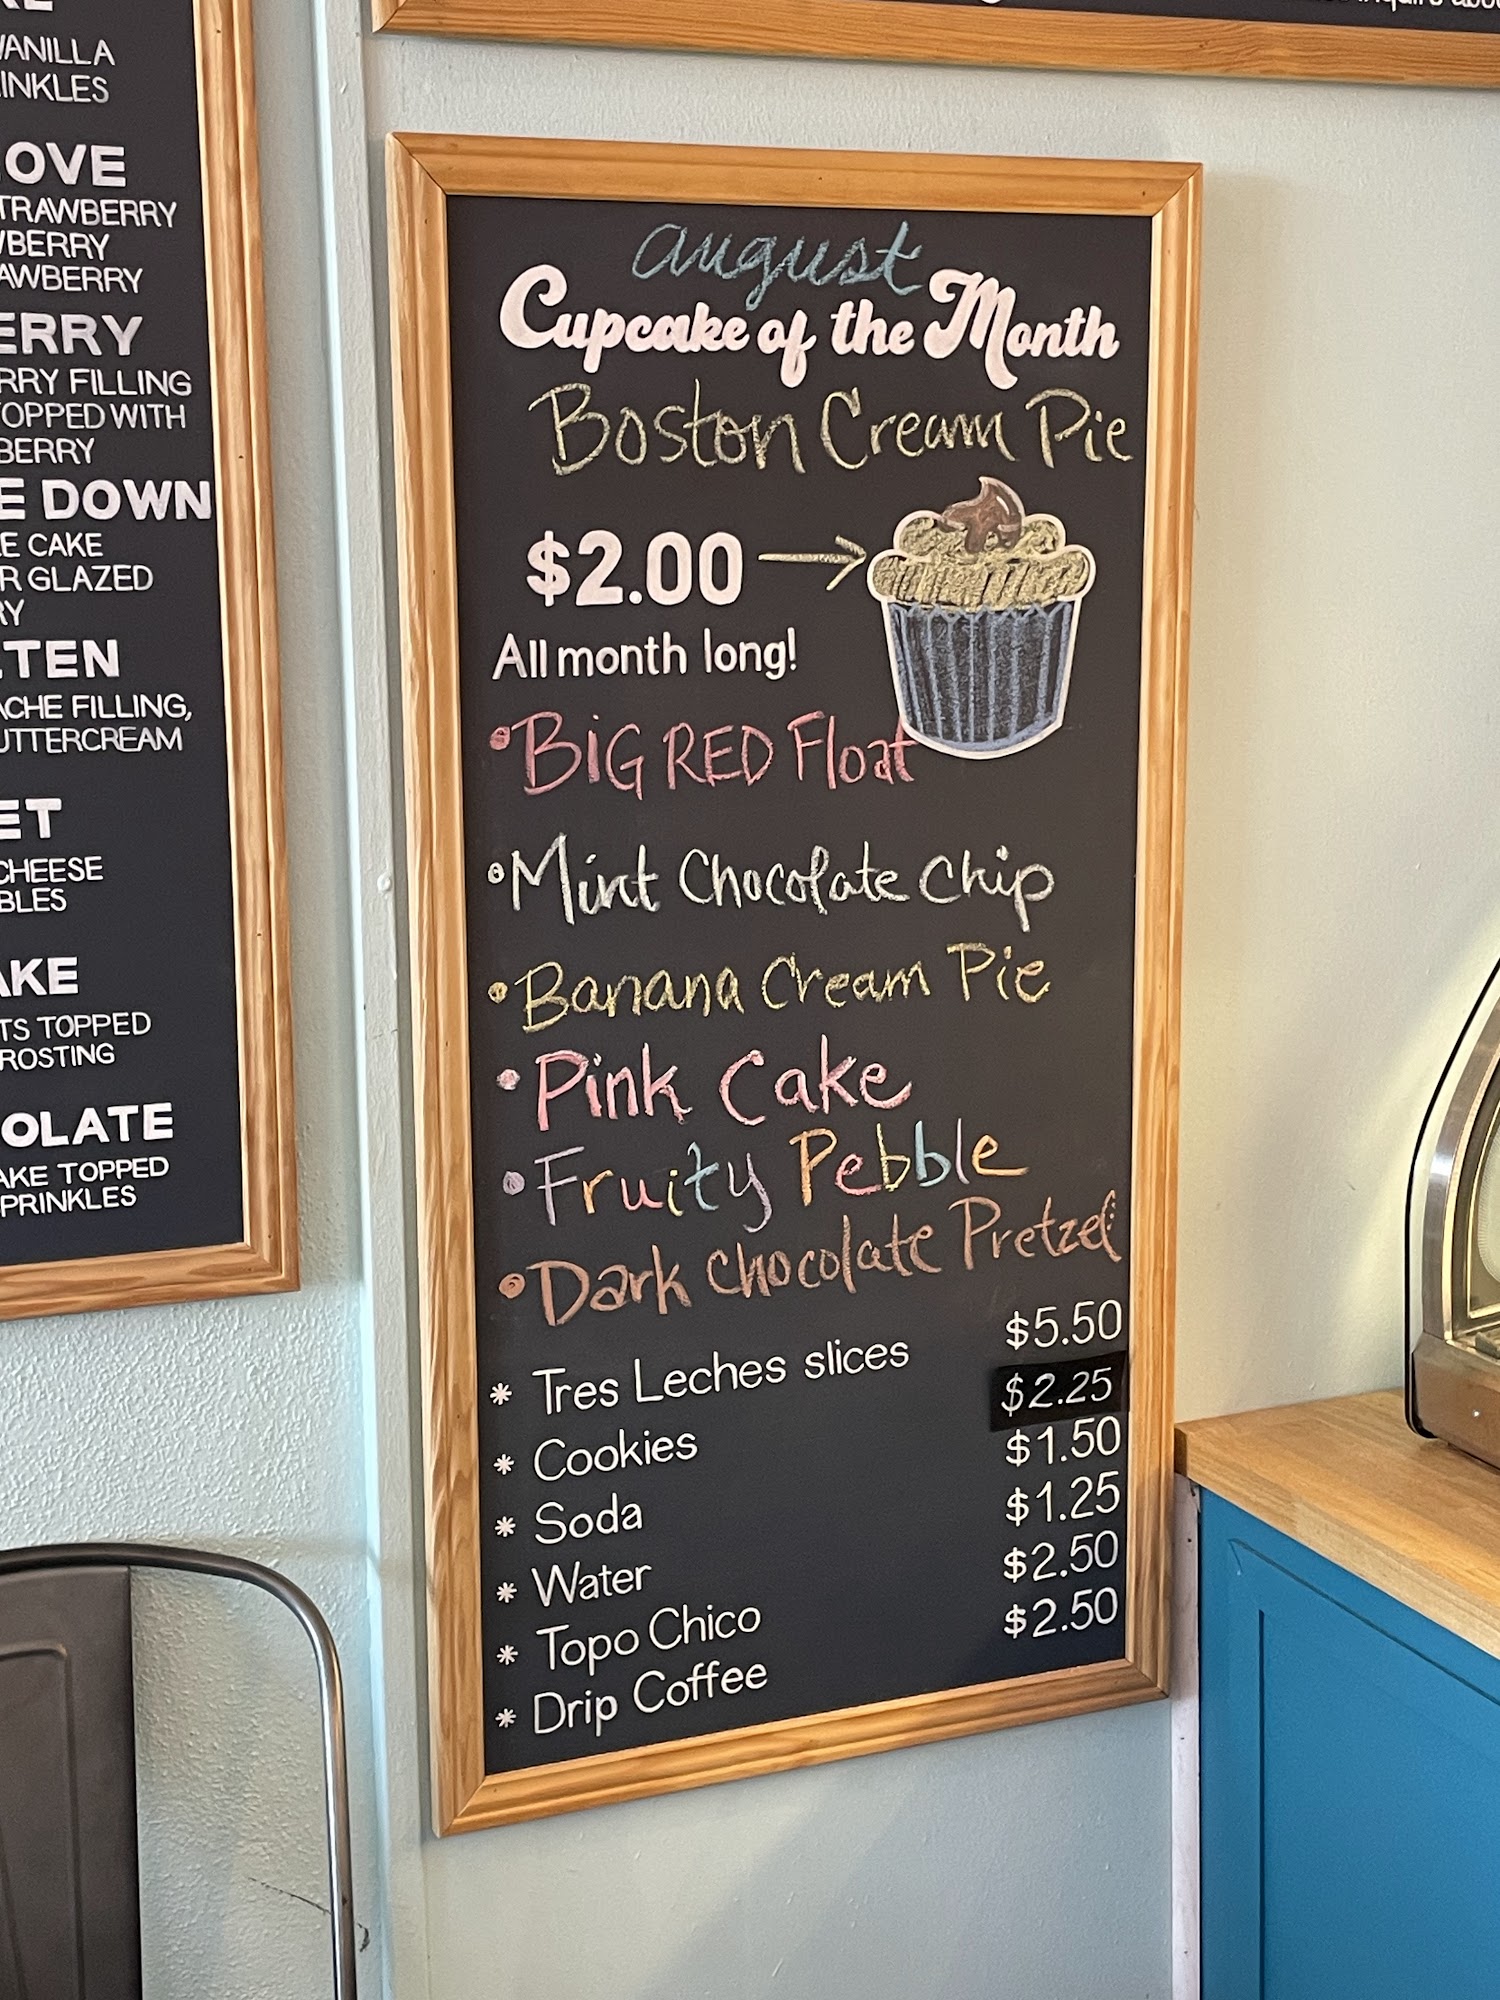 VANILLA
INKLES
OVE
TRAWBERRY
BERRY
AWBERRY
ERRY
RRY FILLING
TOPPED WITH
BERRY
E DOWN
E CAKE
R GLAZED
RY
TEN
ACHE FILLING,
UTTERCREAM
ET
CHEESE
BLES
AKE
TS TOPPED
ROSTING
OLATE
AKE TOPPED
PRINKLES
august
Cupcake of the Month
Boston Cream Pie
$2.00
All month long!
• BiG RED Float
• Mint Chocolate Chip
• Banana Cream Pie
• Pink Cake
• Fruity Pebble
• Dark Chocolate Pretzel
* Tres Leches slices $5.50
* Cookies $2.25
* Soda $1.50
* Water $1.25
* Topo Chico $2.50
* Drip Coffee $2.50